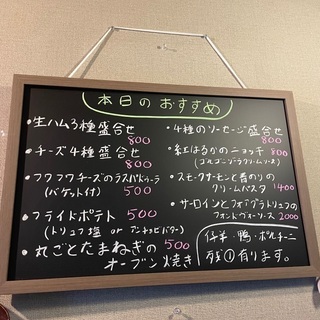 本日のおすすめ
•生ハム3種盛合せ
800
•チーズ4種盛合せ
800
•フワフワチーズのラスパドゥーラ
(バケット付) 500
•フライドポテト 500
(トリュフ塩 or アンチョビバター)
•丸ごとたまねぎの 500
オーブン焼き
•4種のソーセージ盛合せ
800
•紅はるかのニョッキ 800
(ゴルゴンゾーラクリームソース)
•スモークサーモンと青のりの
クリームパスタ 1400
•サーロインとフォアグラトリュフの
フォンドヴォーソース 2000
仔羊・鴨・ポルチーニ
残①有ります。